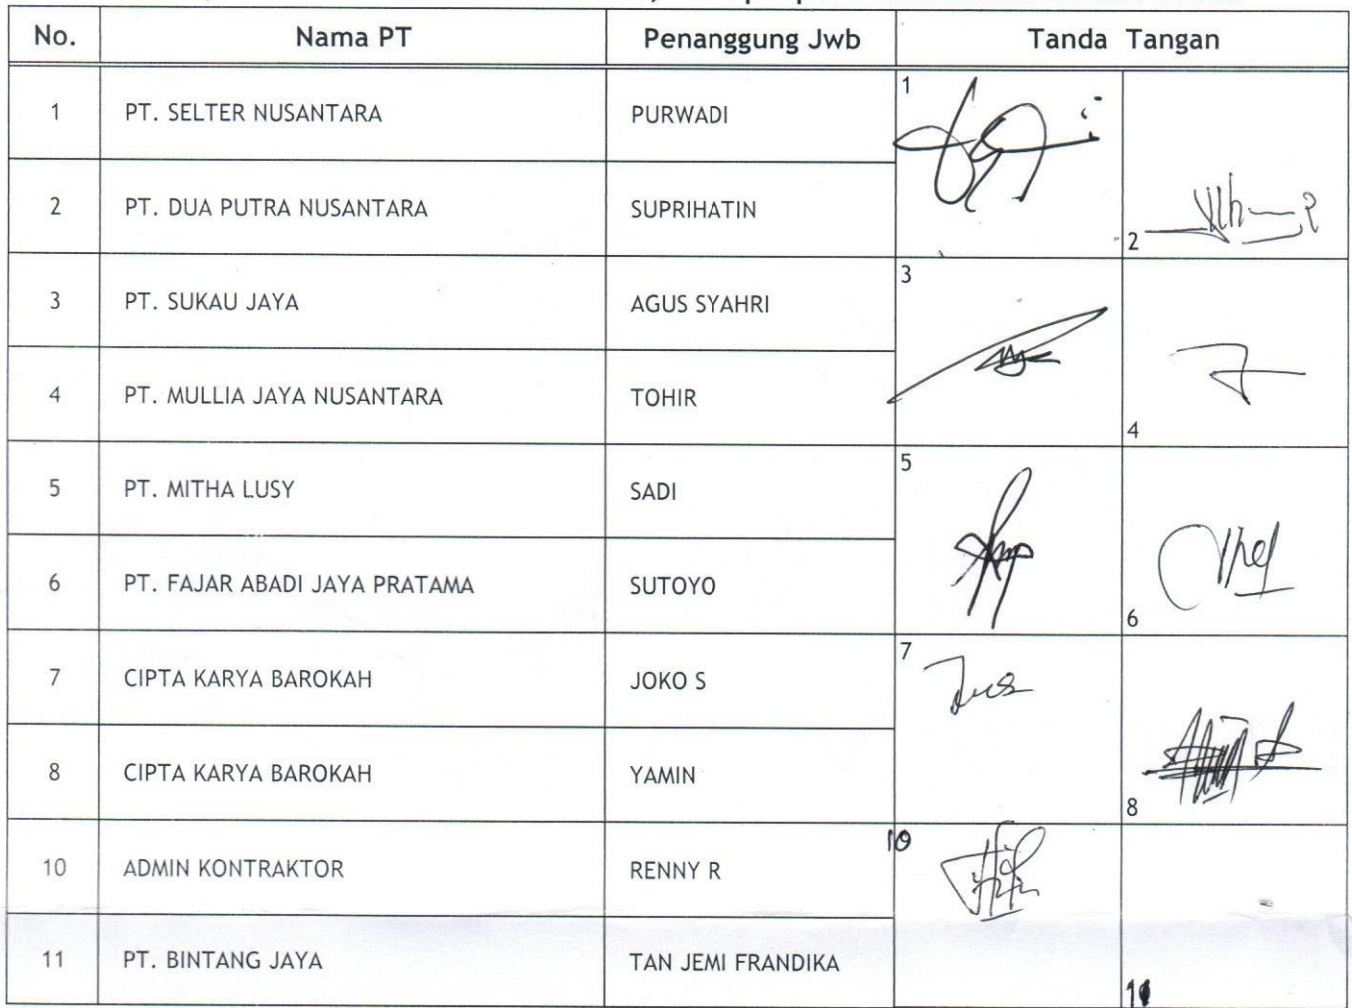 No. Nama PT Penanggung Jwb Tanda Tangan
1 PT. SELTER NUSANTARA PURWADI 1
2 PT. DUA PUTRA NUSANTARA SUPRIHATIN 2
3 PT. SUKAU JAYA AGUS SYAHRI 3
4 PT. MULLIA JAYA NUSANTARA TOHIR 4
5 PT. MITHA LUSY SADI 5
6 PT. FAJAR ABADI JAYA PRATAMA SUTOYO 6
7 CIPTA KARYA BAROKAH JOKO S 7
8 CIPTA KARYA BAROKAH YAMIN 8
10 ADMIN KONTRAKTOR RENNY R 10
11 PT. BINTANG JAYA TAN JEMI FRANDIKA 11